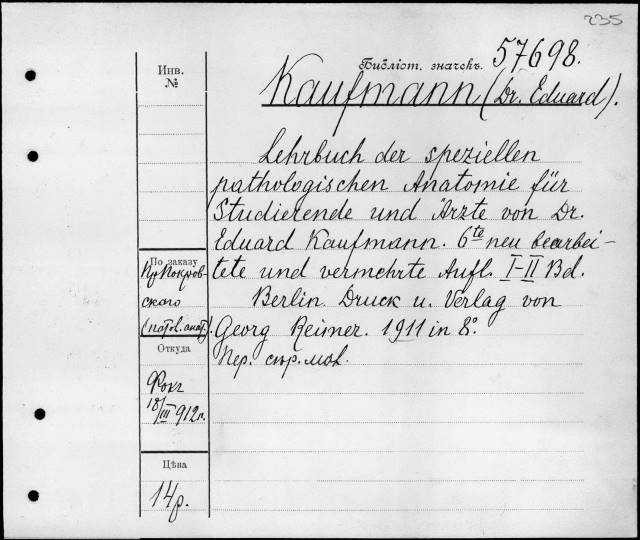 235
Библіот. значекъ 57698.
Kaufmann (Dr. Eduard).
Инв.
№
Lehrbuch der speziellen
pathologischen Anatomie für
Studierende und Ärzte von Dr.
Eduard Kaufmann. 6te neu bearbei-
tete und vermehrte Aufl. I-II Bd.
Berlin. Druck u. Verlag von
Georg Reimer. 1911 in 8°.
Пер. скр. мов.
По заказу
Пр Покров-
ского
(патол. анат.).
Откуда
Фокг
18/III 912 г.
Цѣна
14 р.